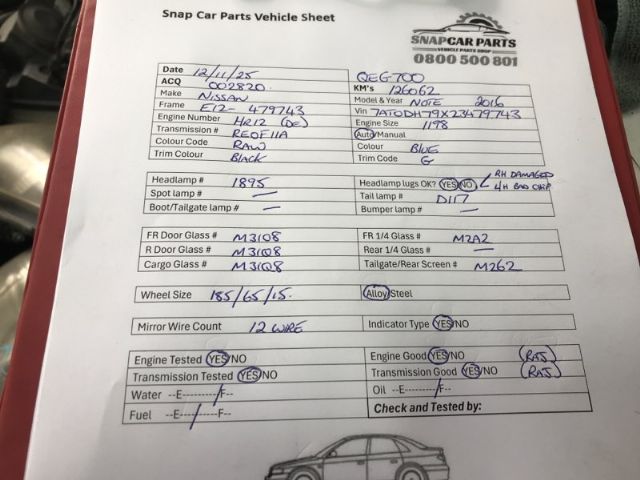 Snap Car Parts Vehicle Sheet
SNAPCAR PARTS
VEHICLE PARTS SHOP
0800 500 801
Date 12/11/25 QEG700
ACQ 002820 KM's 126062
Make NISSAN Model & Year NOTE 2016
Frame E12- 479743 Vin 7AT0DH79X23479743
Engine Number HR12 (DE) Engine Size 1198
Transmission # RE0F11A Auto/Manual
Colour Code RAW Colour BLUE
Trim Colour BLACK Trim Code G
Headlamp # 1895 Headlamp lugs OK? YES/NO RH DAMAGED
Spot lamp # — Tail lamp # D117
Boot/Tailgate lamp # — Bumper lamp # —
FR Door Glass # M3108 FR 1/4 Glass # M2A2
R Door Glass # M3108 Rear 1/4 Glass # —
Cargo Glass # M3108 Tailgate/Rear Screen # M262
Wheel Size 185/65/15. Alloy/Steel
Mirror Wire Count 12 WIRE Indicator Type YES/NO
Engine Tested YES/NO Engine Good YES/NO (RAJ)
Transmission Tested YES/NO Transmission Good YES/NO (RAJ)
Water --E----------/F-- Oil --E---------/F--
Fuel --E----/------F-- Check and Tested by: